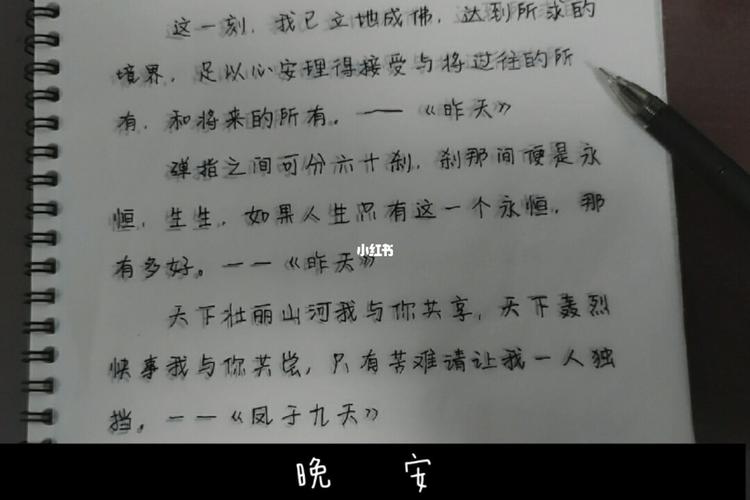 这一刻，我已立地成佛，达到所求的
境界，足以心安理得接受与将过往的所
有，和将来的所有。——《昨天》
弹指之间可分六十刹，刹那间便是永
恒，生生，如果人生只有这一个永恒，那
有多好。——《昨天》
小红书
天下壮丽山河我与你共享，天下轰烈
快事我与你共尝，只有苦难请让我一人独
挡。——《凤于九天》
晚 安